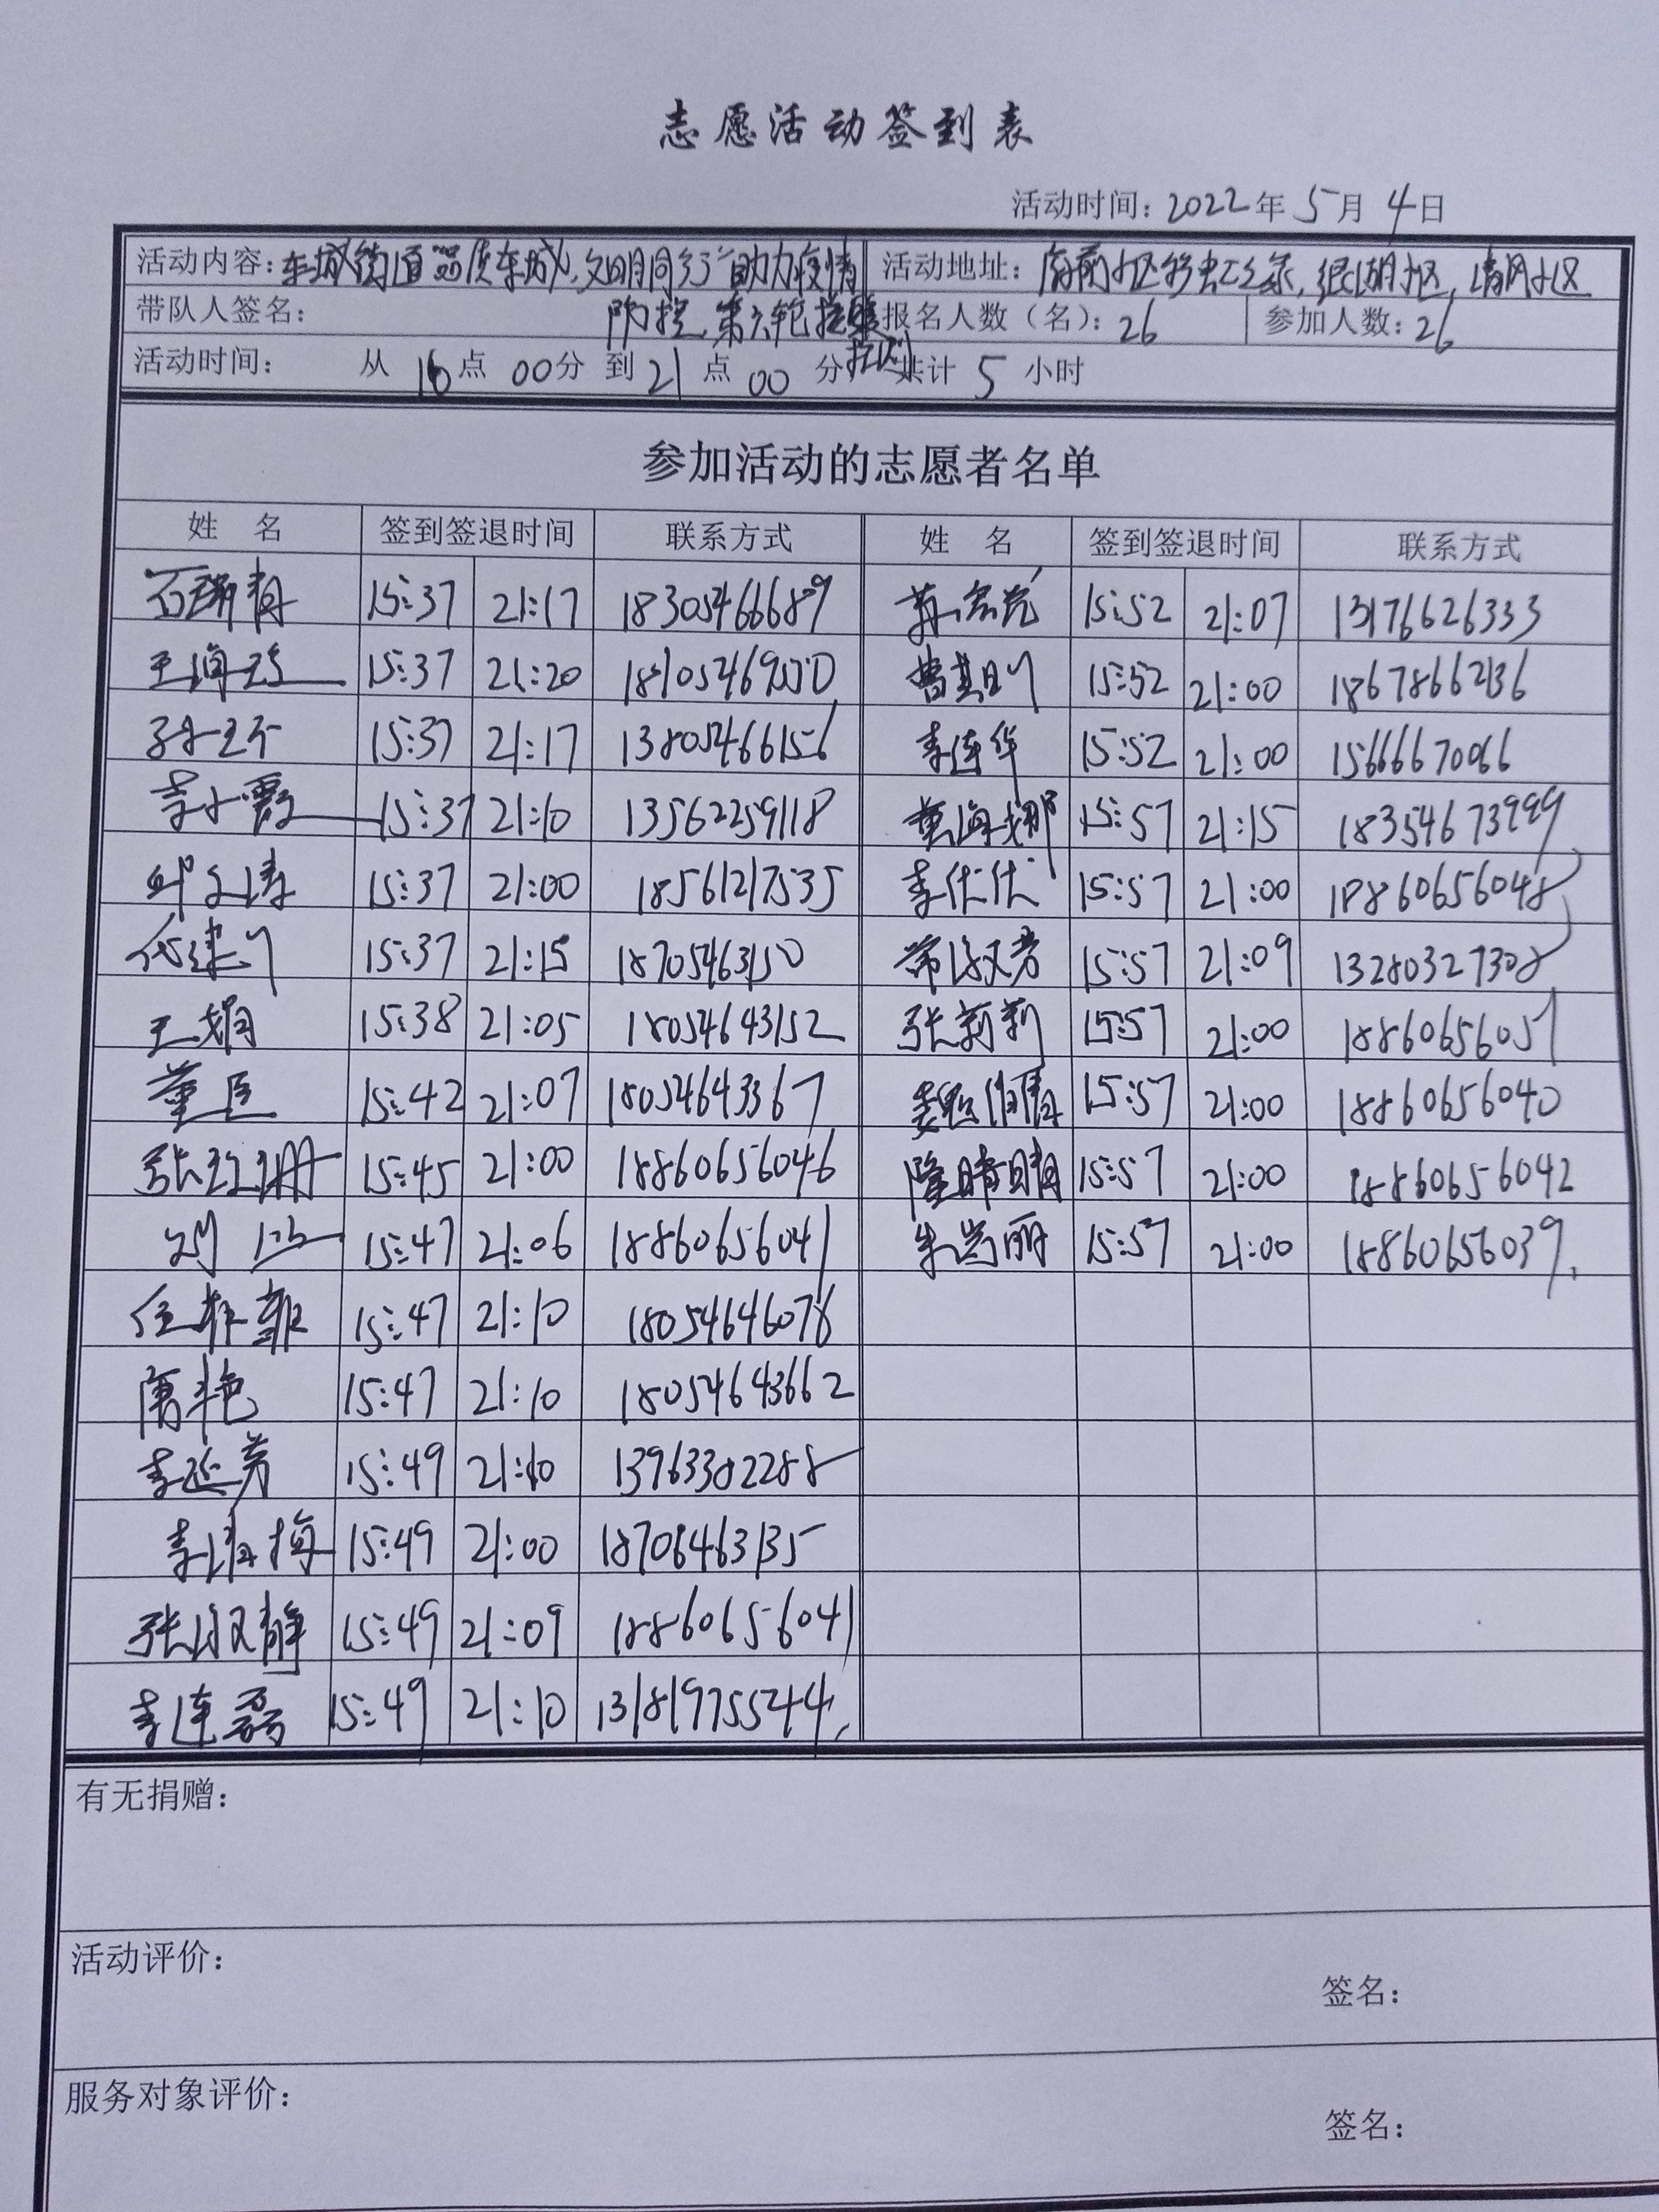 志愿活动签到表
活动时间：2022年5月4日
活动内容：东城街道"品质东城，文明同行"助力疫情 活动地址：府前小区
带队人签名： 防控第六轮 报名人数（名）：26 参加人数：26
活动时间： 从16点00分到21点00分 共计5小时
参加活动的志愿者名单
姓 名 签到签退时间 联系方式 姓 名 签到签退时间 联系方式
15:37 21:17 18305466689 15:52 21:07 13176626333
王海玲 15:37 21:20 曹其 15:52 21:00 18678662136
15:37 21:17 13805466156 李连华 15:52 21:00 15666670066
李小霞 15:37 21:10 13562259118 黄海娜 15:57 21:15 18354673999
邱文涛 15:37 21:00 18561217535 李仕仕 15:57 21:00 18860656048
15:37 21:15 18705463150 常淑芳 15:57 21:09 13280327308
王娟 15:38 21:05 18054643152 张莉莉 15:57 21:00 18860656051
董臣 15:42 21:07 18054643367 15:57 21:00 18860656040
张珊 15:45 21:00 18860656046 隆晴晴 15:57 21:00 18860656042
刘 15:47 21:06 18860656041 朱尚丽 15:57 21:00 18860656039
任菲菲 15:47 21:10 18054646078
唐艳 15:47 21:10 18054643662
李延芳 15:49 21:10 13963382288
李海梅 15:49 21:00 18706463135
张淑静 15:49 21:09 18860656041
李连磊 15:49 21:10 13181975544
有无捐赠：
活动评价：
签名：
服务对象评价：
签名：